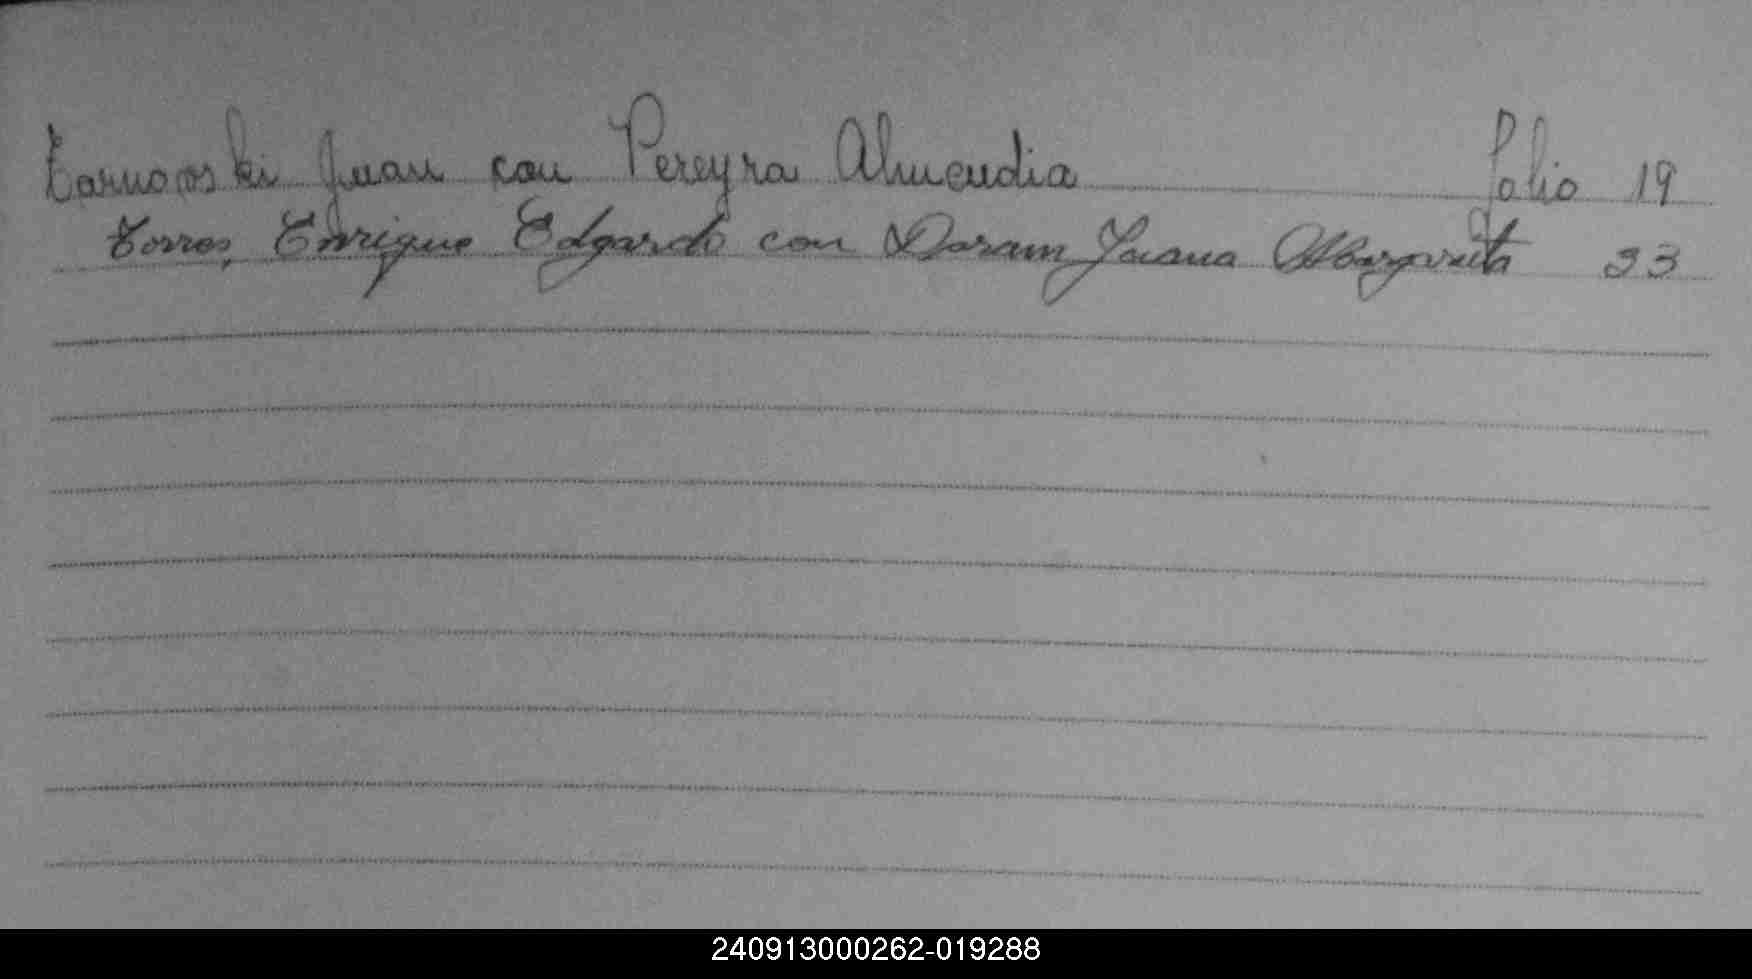 Tarnowski Juan con Pereyra Almeudia Folio 19
Torres, Enrique Edgardo con Doram Juana Margarita 23
240913000262-019288